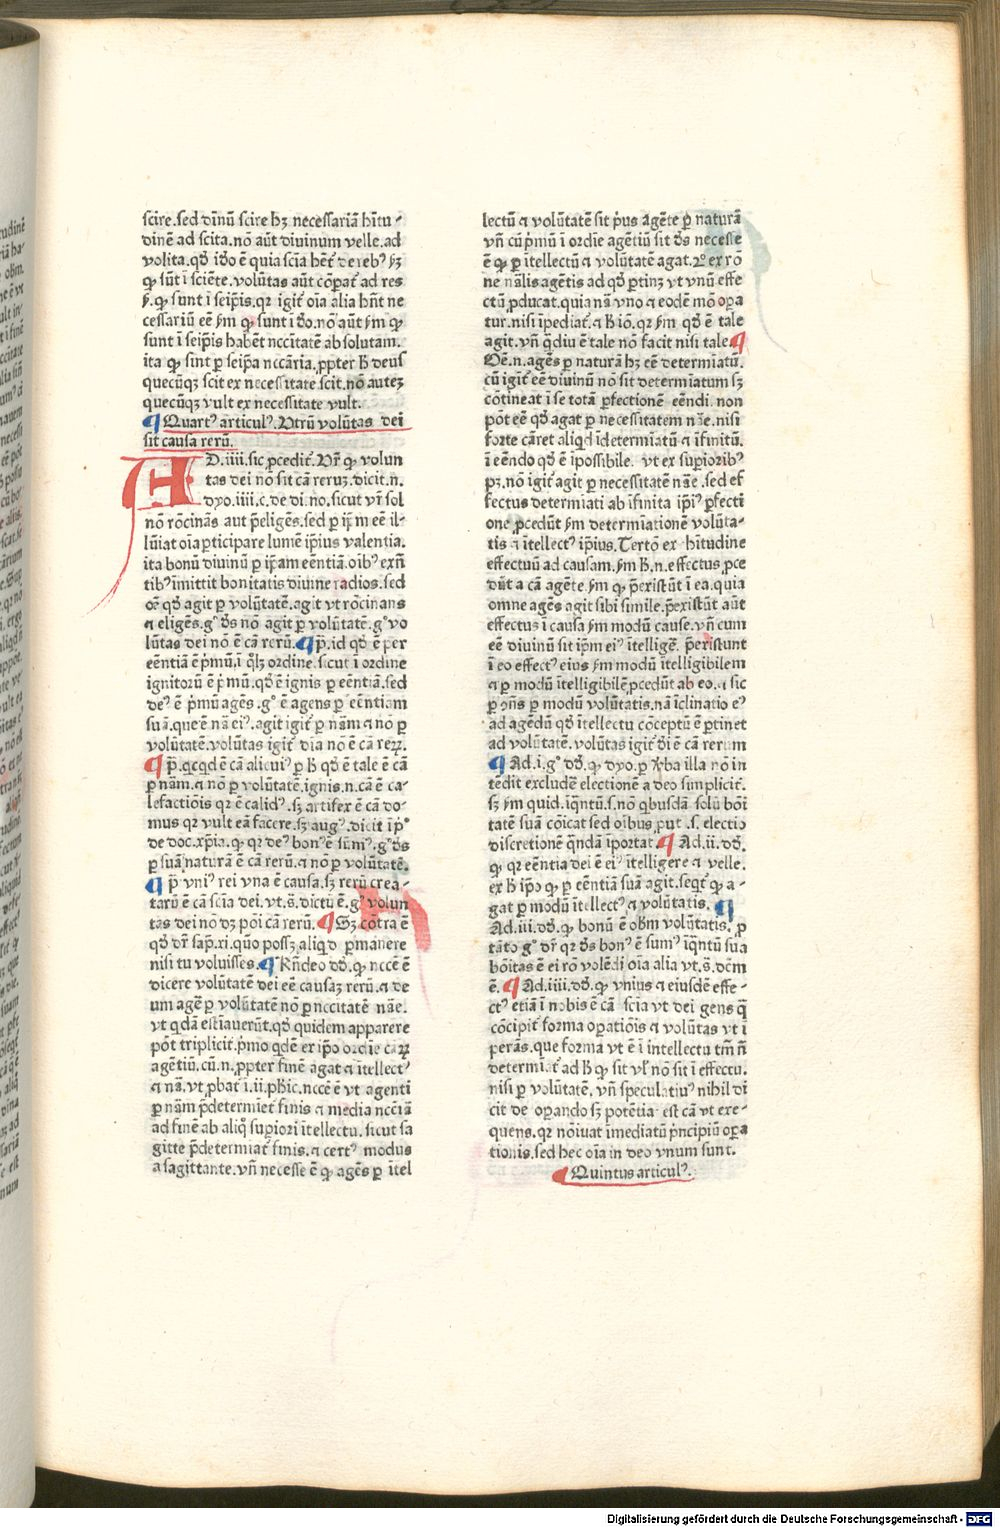 scire.sed dīnū scire hꝫ necessariā hītu-
dinē ad scita.nō aūt divinum velle.ad
volita.qđ iđo ē quia scīa hēt̄ de rebꝰ ẜm
ꝙ sūt ī sciēte.volūtas aūt cōꝑat̄ ad res
ẜ.ꝙ sunt ī seip̄is.qꝛ igit̄ oīa alia hn̄t ne
cessariū eē ẜm ꝙ sunt ī đo.nō aūt ẜm ꝙ
sunt ī seip̄is habēt nccitatē absolutam.
ita ꝙ sint ꝑ seip̄a nccāria.ꝓpter h̄ deus
quecūqꝫ scit ex necessitate scit.nō auteꝫ
quecūqꝫ vult ex necessitate vult.
¶ Quartꝰ articulꝰ.Utrū volūtas dei
sit causa rerū.
AD.iiii.sic ꝓcedit̄.Vr̄ ꝙ volun
tas dei nō sit cā reruꝫ.dicit.n̄.
dyo.iiii.c.de di.no.sicut vr̄ sol
nō rōcināns aut p̄eligēs.sed ꝑ ip̄m eē il-
lūiat oīa ꝑticipare lumē ip̄ius valentia.
ita bonū divinū ꝑ ip̄am eēntiā.oībꝰ exn̄
tibꝰ īmittit bonitatis divine radios.sed
oē qđ agit ꝑ volūtatē.agit vt rōcinans
⁊ eligēs.gͦ đs nō agit ꝑ volūtatē.gͦ vo
lūtas dei nō ē cā rerū.¶ p̄.id qđ ē per
eēntiā ē p̄mū.ī q̄lꝫ ordine.sicut ī ordine
ignitorū ē p̄mū.qđ ē ignis ꝑ eēntiā.sed
deꝰ ē p̄mū agēs.gͦ ē agens ꝑ eēntiam
suā.que ē nā eiꝰ.agit igit̄ ꝑ nām ⁊ nō ꝑ
volūtatē.volūtas igit̄ dīa nō ē cā reꝝ.
¶ p̄.qͥcqͥd ē cā alicuiꝰ ꝑ h̄ qđ ē tale ē cā
ꝑ nām.⁊ nō ꝑ volūtatē.ignis.n.cā ē ca-
lefactiōis qꝛ ē calidꝰ.sꝫ artifex ē cā do-
mus qꝛ vult eā facere.sꝫ augꝰ.dicit ip̄o
de doc.xp̄ia.ꝙ qꝛ deꝰ bonꝰ ē sumꝰ.gͦ đs
ꝑ suā naturā ē cā rerū.⁊ nō ꝑ volūtatē.
¶ p̄ vniꝰ rei vna ē causa.sꝫ rerū crea-
tarū ē cā scīa dei.vt.s̄.dictū ē.gͦ volun
tas dei nō dꝫ pōi cā rerū.¶ Sꝫ cōtra ē
qđ dr̄ sap̄.xi.quō possꝫ aliqͥd ꝑmanere
nisi tu voluisses.¶ Rn̄deo đđ.ꝙ nccē ē
dicere volūtatē dei eē causaꝫ rerū.⁊ de
um agēꝑ volūtatē nō ꝑ nccitatē nāe.
vt qͥdā estīaverūt.qđ quidem apparere
pōt triplicit̄.p̄mo qͥdē ex ip̄o ordīe cāꝝ
agētiū.cū.n.ꝓpter finē agat ⁊ ītellectꝰ
⁊ nā.vt ꝓbat̄ ī.ii.phic.nccē ē vt agenti
ꝑ nām p̄determiet̄ finis ⁊ media nccīa
ad finē ab aliq̄ supiori ītellectu.sicut sa
gitte p̄determiat̄ finis.⁊ certꝰ modus
a sagittante.vn̄ necesse ē ꝙ agēs ꝑ ītel
lectū ⁊ volūtatē sit p̄us agēte ꝑ naturā
vn̄ cū p̄mū ī ordīe agētiū sit đs necesse
ē ꝙ ꝑ ītellectū ⁊ volūtatē agat. ex rō
ne nālis agētis ad qđ ꝑtinꝫ vt vnū effe
ctū ꝓducat.quia nā vno ⁊ eodē mō opa
tur.nisi īpediat̄.⁊ h̄ iō.qꝛ ẜm qđ ē tale
agit.vn̄ q̄diu ē tale nō facit nisi tale.¶
Oē.n.agēs ꝑ naturā hꝫ eē determiatū.
cū igit̄ eē divinū nō sit determiatum sꝫ
cōtineat ī se totā ꝑfectionē eēndi.non
pōt eē qđ agat ꝑ necessitatem nāe.nisi
forte cāret aliqͥd īdetermiatū ⁊ īfinitū.
ī eēndo qđ ē īpossibile. vt ex supioribꝰ
pꝫ.nō igit̄ agit ꝑ necessitatē nāe.sed ef
fectus determiati ab īfinita ip̄iꝰ ꝑfecti
one ꝓcedūt ẜm determiationē volūta-
tis ⁊ ītellectꝰ ip̄ius.Tertō ex hītudine
effectuū ad causam.ẜm h̄.n.effectus ꝓce
dūt a cā agēte ẜm ꝙ p̄existūt ī ea.quia
omne agēs agit sibi simile.p̄existūt aūt
effectus ī causa ẜm modū cause.vn̄ cum
eē divinū sit ip̄m eiꝰ ītelligē. p̄existunt
ī eo effectꝰ eius ẜm modū ītelligibilem
⁊ ꝑ modū ītelligibilē ꝓcedūt ab eo.⁊ sic
ꝑ ꝯn̄s ꝑ modū volūtatis.nā īclinatio eꝰ
ad agēdū qđ ītellectu cōceptū ē ꝑtinet
ad volūtatē.volūtas igit̄ di ē cā rerum
¶ Ad.i.gͦ đđ.ꝙ dyo.ꝑ v̄ba illa nō in
tēdit excludē electionē a deo simplicit̄.
sꝫ ẜm quid.iqͣntū.s.nō qbusdā solū boī
tatē suā cōicat sed oībus ꝓut .s. electio
discretionē qͣndā īportat.¶ Ad.ii.đđ.
ꝙ qꝛ eēntia dei ē eiꝰ ītelligere ⁊ velle.
ex h̄ ip̄o ꝙ ꝑ eēntiā suā agit.seqͥt̄ ꝙ a-
gat ꝑ modū ītellectꝰ ⁊ volūtatis. ¶
Ad.iii.đđ.ꝙ bonū ē obm̄ volūtatis.ꝓ
tāto gͦ dr̄ qꝛ đs bonꝰ ē sumꝰ.iqͣntū sua
bōitas ē ei rō volēdi oīa alia vt.s̄.dcm̄
ē.¶ Ad.iiii.đđ.ꝙ vnius ⁊ eiusdē effe-
ctꝰ etiā ī nobis ē cā scīa vt dei gens q̄
cōcipit̄ forma opatiōis ⁊ volūtas vt ī
perās.que forma vt ē ī intellectu tm̄ n̄
determiat̄ ad h̄ ꝙ sit vl̄ nō sit ī effectu.
nisi ꝑ volūtatē.vn̄ speculatiuꝰ nihil dī
cit de opando sꝫ potētia est cā vt exe-
quens.qꝛ nōīuat īmediatū p̄ncipiū opa
tionis.sed hec oīa in deo vnum sunt.
¶ Quintus articulꝰ.
Digitalisierung gefördert durch die Deutsche Forschungsgemeinschaft - DFG